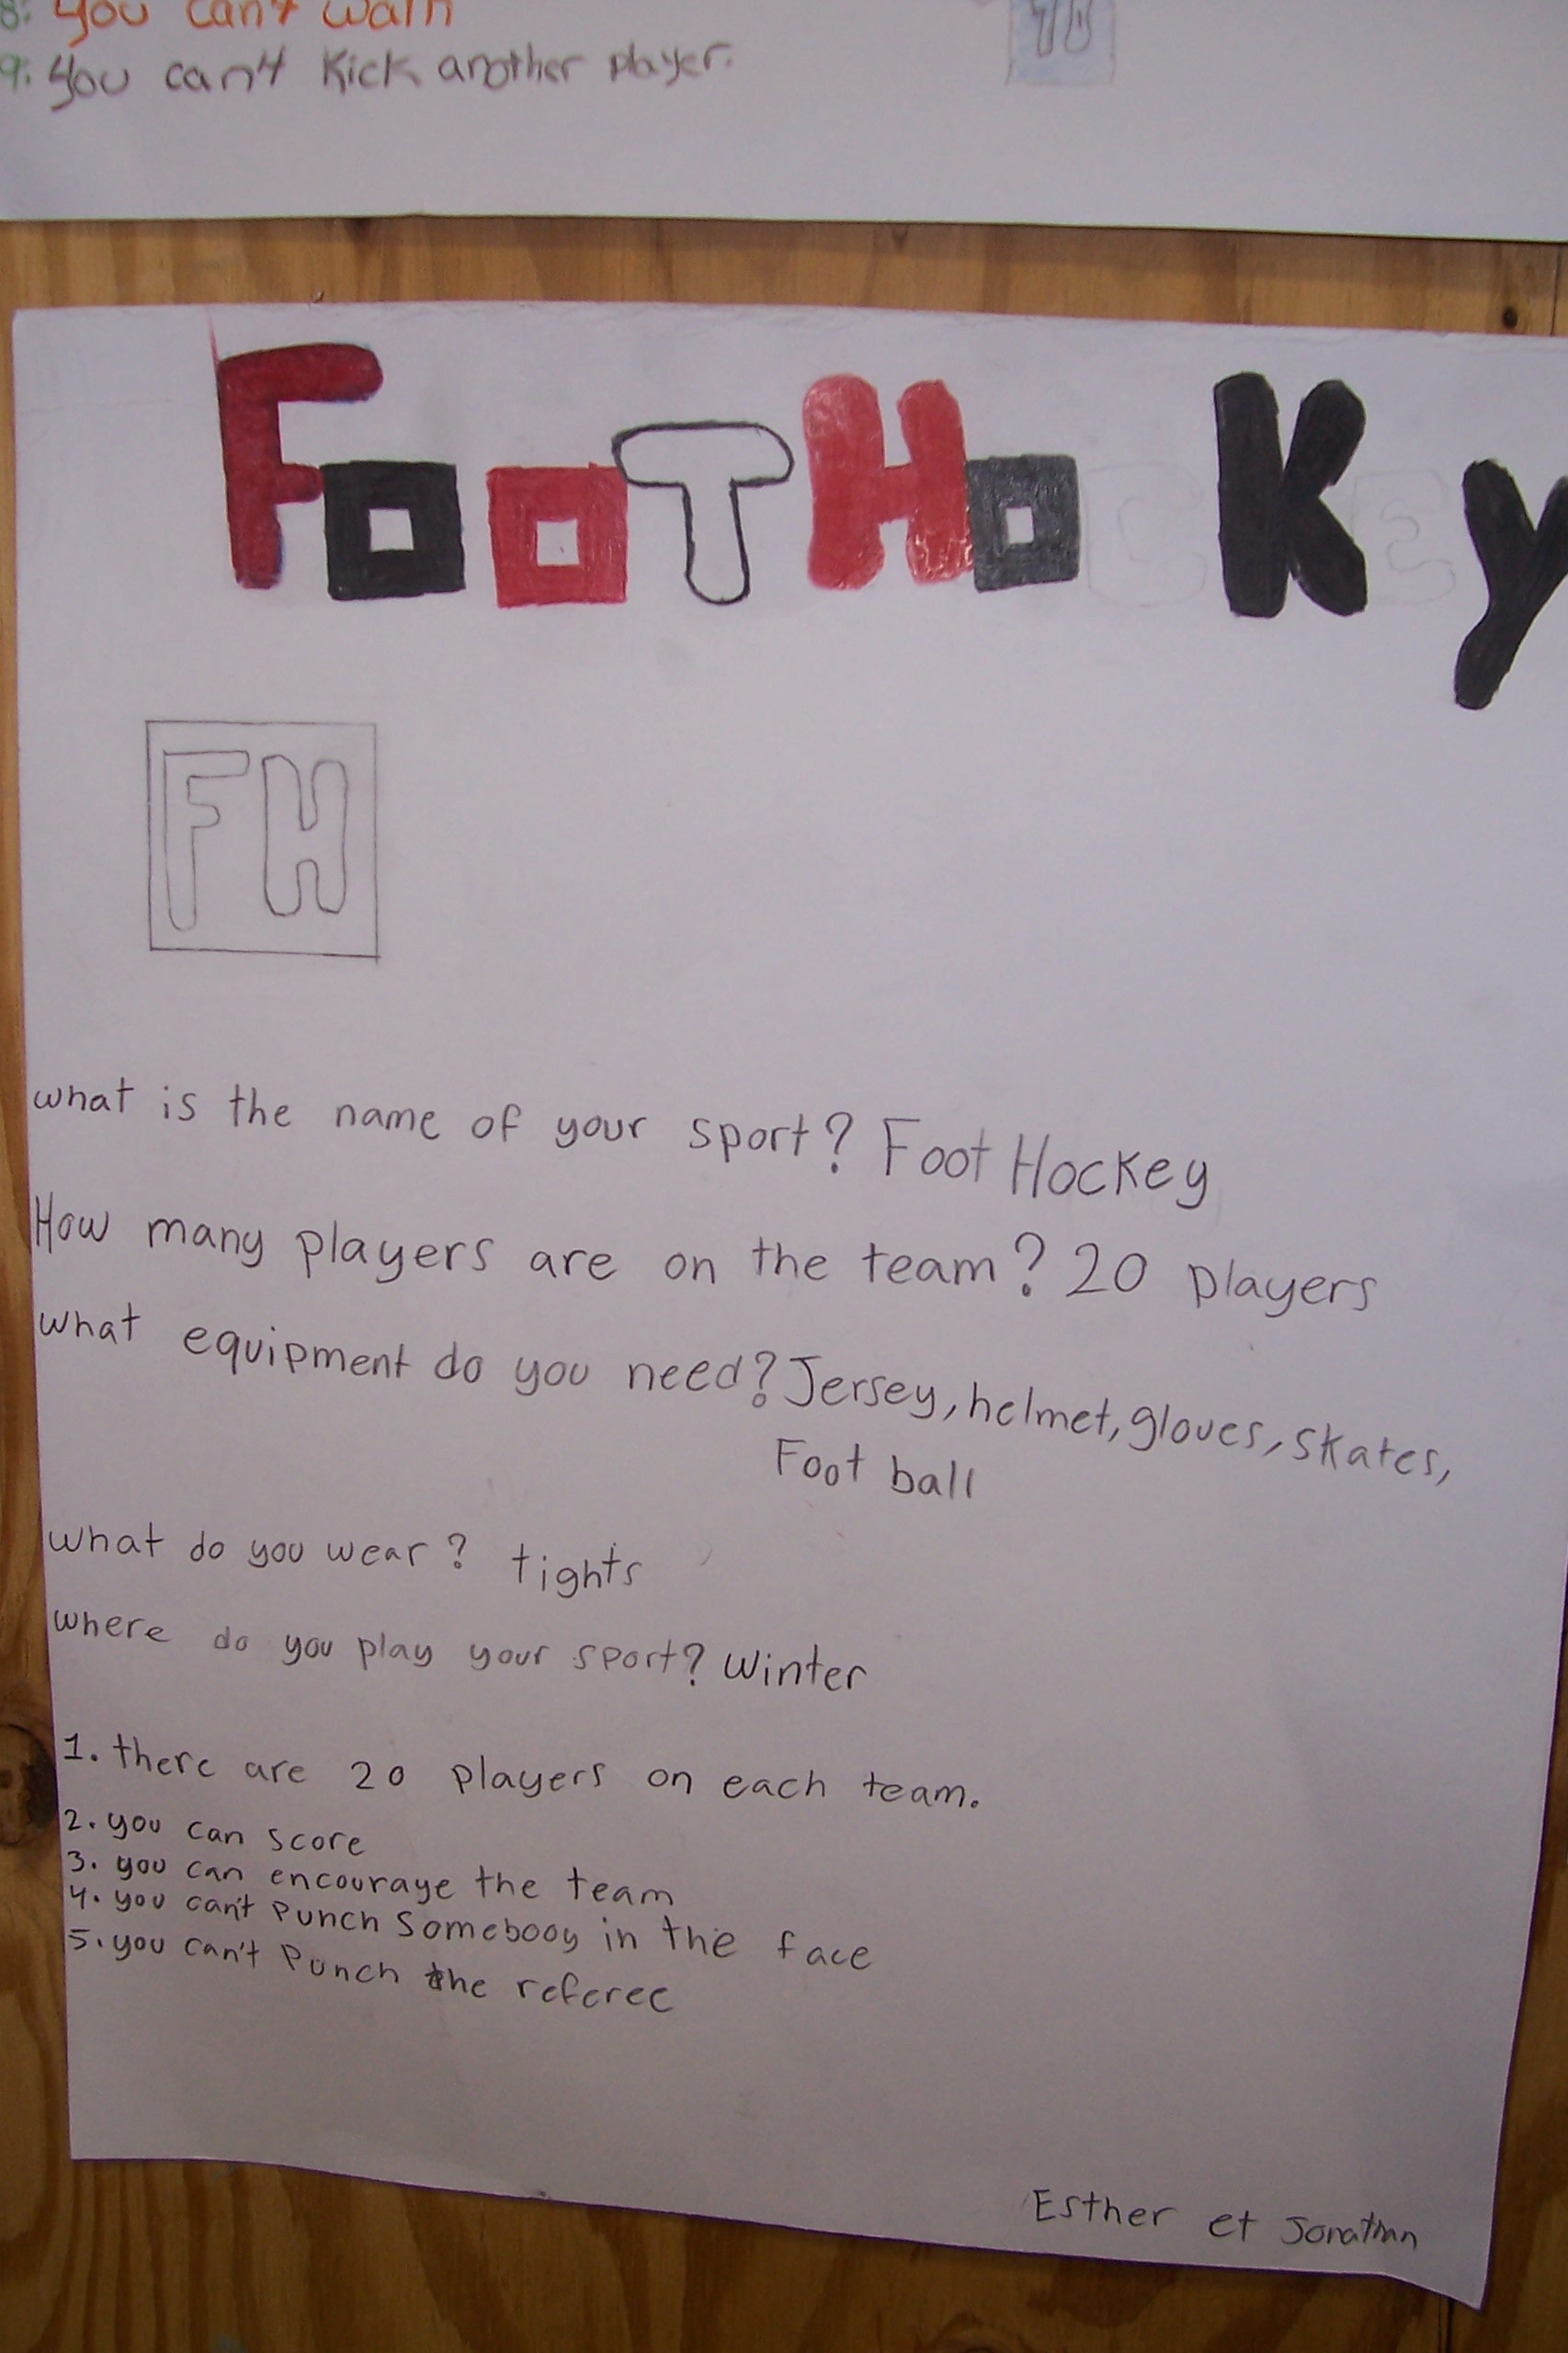 8: you can't walk
9: you can't kick another player.
FooTHoCKEy
FH
what is the name of your sport? Foot Hockey
How many players are on the team? 20 players
what equipment do you need? Jersey, helmet, gloves, skates,
Foot ball
what do you wear? tights
where do you play your sport? Winter
1. there are 20 players on each team.
2. you can score
3. you can encouraye the team
4. you can't Punch Somebooy in the face
5. you can't Punch the referee
Esther et Jonathan